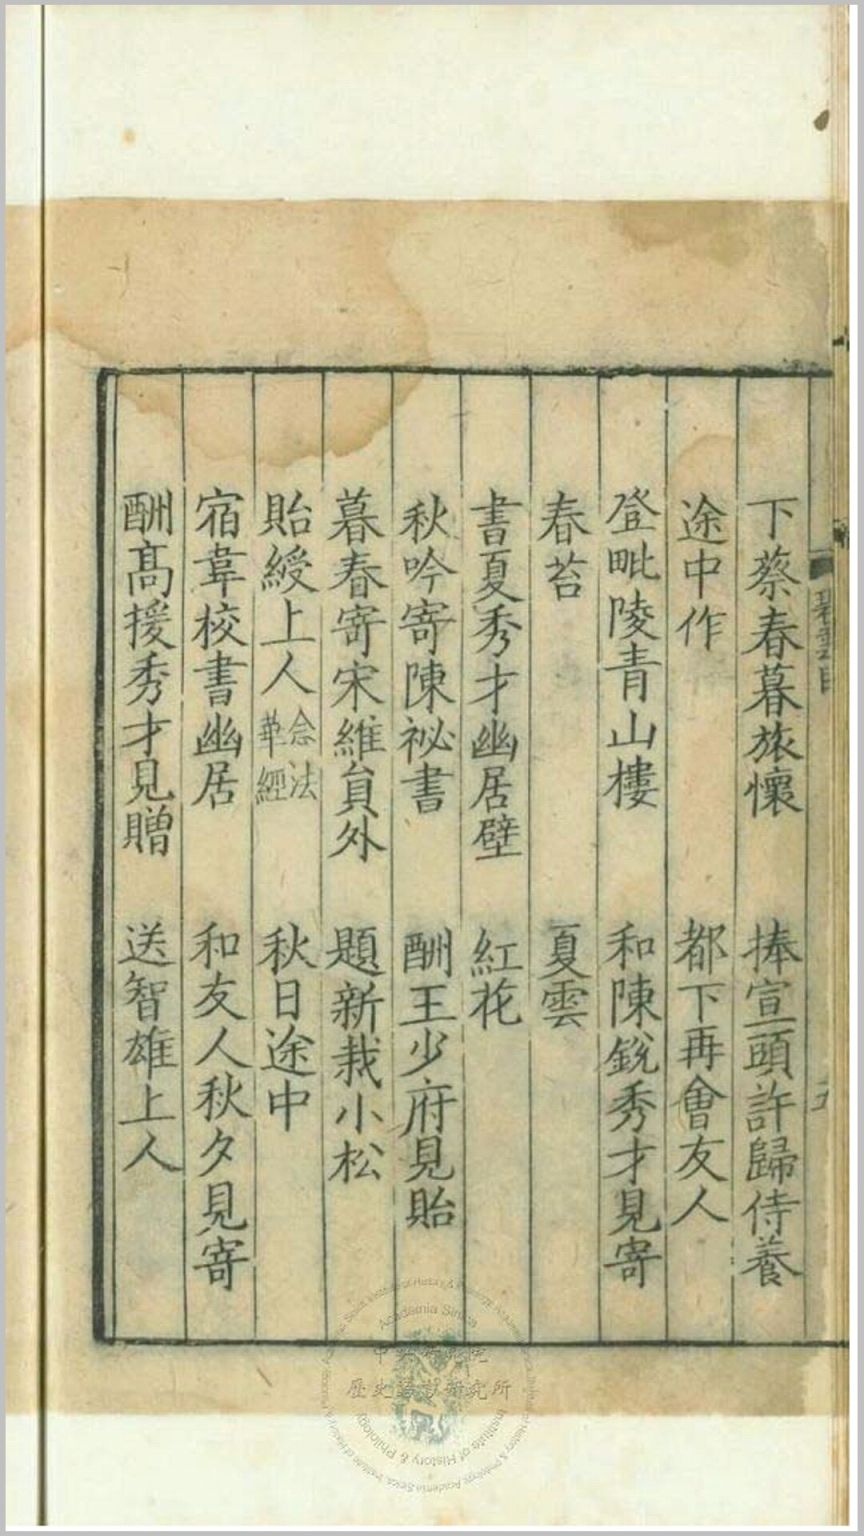 下蔡春暮旅懷　捧宣頭許歸侍養
途中作　都下再會友人
登毗陵青山樓　和陳銳秀才見寄
春苔　夏雲
書夏秀才幽居壁　紅花
秋吟寄陳祕書　酬王少府見貽
暮春寄宋維員外　題新栽小松
貽綬上人念法華經　秋日途中
宿韋校書幽居　和友人秋夕見寄
酬高援秀才見贈　送智雄上人
Academia Sinica
歷史語言研究所
Institute of History & Philology